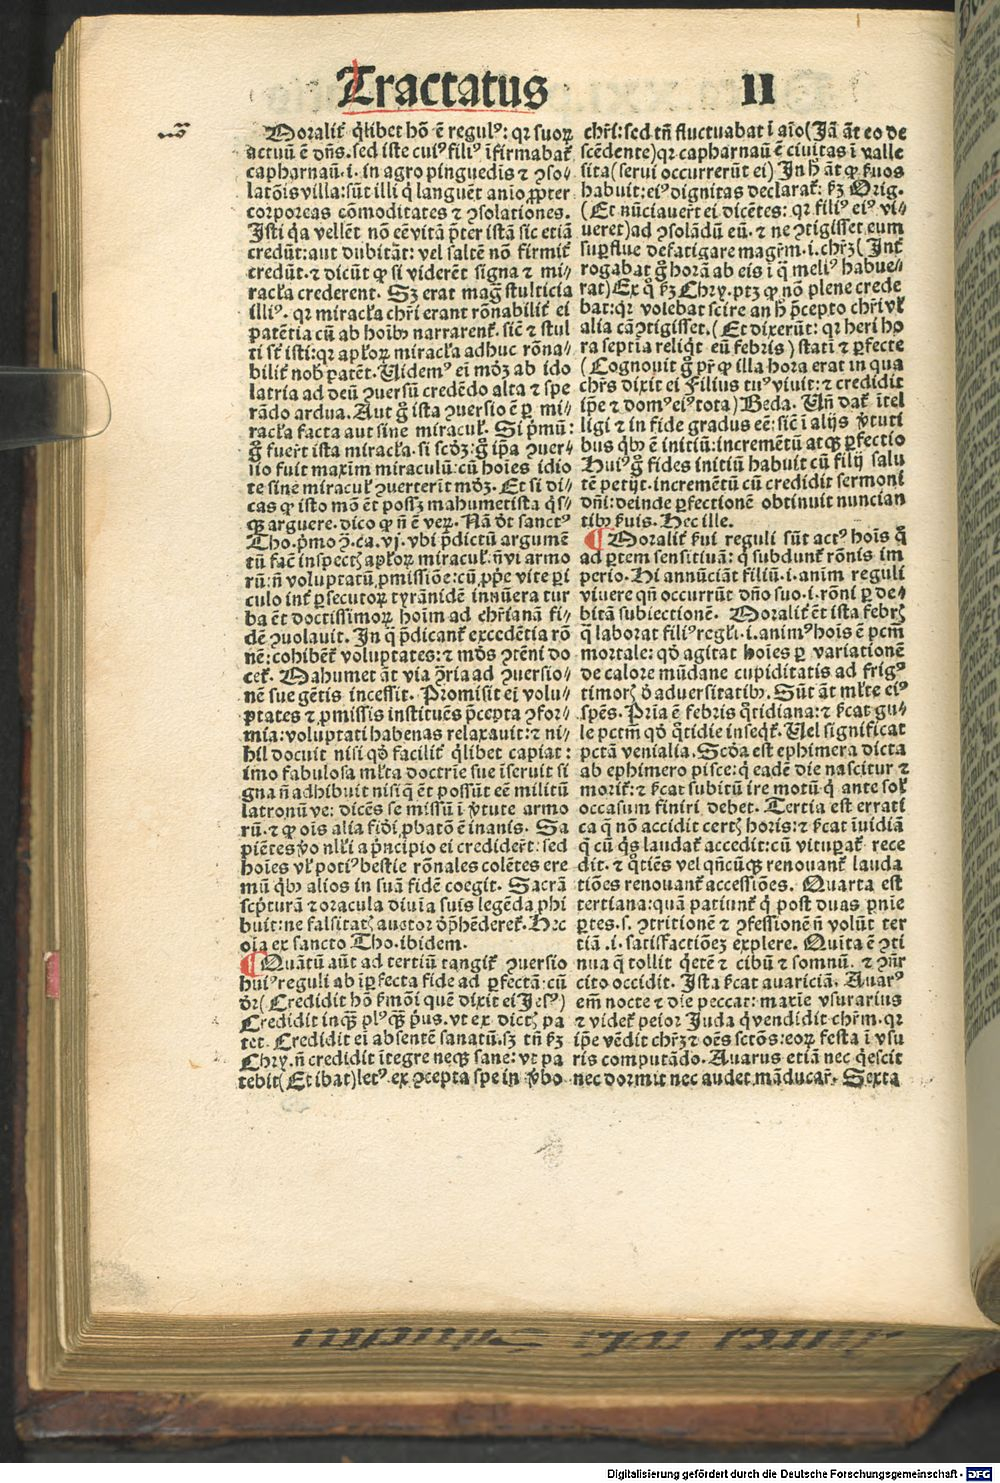 Tractatus II
Moralit̃ q̃libet hõ ẽ regulꝰ: qꝛ suoꝝ
actuũ ẽ dñs. sed iste cuiꝰ filiꝰ ĩfirmabat̃
capharnaũ. i. in agro pinguedĩs ⁊ ꝯso-
latõis villa: sũt illi q̃ languẽt aĩo ꝓpter
corporeas cõmoditates ⁊ ꝯsolationes.
Isti q̃a vellẽt nõ eẽ vitã p̃ter istã sic etiã
credũt: aut dubitãt: vel saltẽ nõ firmit̃
credũt. ⁊ dicũt ꝙ si viderẽt signa ⁊ mi-
racl̃a crederent. Sꝫ erat mag̃ stulticia
illiꝰ. qꝛ miracl̃a chr̃i erant rõnabilit̃ ei
patẽtia cũ ab hoĩbꝰ narrarent̃. sic̃ ⁊ stul
ti st̃ isti: qꝛ apl̃oꝝ miracl̃a adhuc rõna-
bilit̃ nob̃ patẽt. Uidemꝰ eĩ mõꝫ ab ido
latria ad deũ ꝯuersũ credẽdo alta ⁊ spe
rãdo ardua. Aut g̊ ista ꝯuersio ẽ ꝑ mi-
racl̃a facta aut sine miracul̃. Si p̃mũ:
g̊ fuer̃t ista miracl̃a. si scõꝫ: g̊ ip̃a ꝯuer-
sio fuit maxim̃ miraculũ: cũ hoĩes idio
te sine miracul̃ ꝯuerterĩt mõꝫ. Et si di-
cas ꝙ isto mõ ẽt possꝫ mahumetista q̃s-
qꝫ arguere. dico ꝙ ñ ẽ veꝝ. Nã vt̃ sanctꝰ
Tho. p̃mo ꝯ̃. ca. vj. vbi p̃dictũ argumẽ
tũ facĩ inspectꝭ apl̃oꝝ miracul̃. ñ vi armo
rũ: ñ voluptatũ ꝓmissiõe: cũ ꝓp̃e vite ꝑi
culo int̃ ꝑsecutoꝝ tyrãnidẽ innũera tur
ba ẽt doctissimoꝝ hoĩm ad chr̃ianã fi-
dẽ ꝯuolauit. In q̃ p̃dicant̃ excedẽtia rõ
nẽ: cohibẽt̃ voluptates: ⁊ mõs ꝯtẽni do
cet̃. Mahumet ãt via ꝯ̃ria ad ꝯuersio-
nẽ sue gẽtis incessit. Promisit ei volu-
ptates ⁊ ꝓmissis instituẽs p̃cepta ꝯfor-
mia: voluptati habenas relaxauit: ⁊ ni-
hil docuit nisi qď facilit̃ q̃libet capiat:
imo fabulosa ml̃ta doctrĩe sue ĩseruit si
gna ñ adhibuit nisi q̃ ẽt possũt eẽ militũ
latronũ ve: dicẽs se missũ ĩ ṽtute armo
rũ. ⁊ ꝙ oĩs alia fidi ꝓbatõ ẽ inanis. Sa
piẽtes ṽo nl̃li a prĩcipio ei credider̃t: sed
hoĩes vl̃ potiꝰ bestie rõnales colẽtes ere
mũ q̃bꝰ alios in suã fidẽ coegit. Sacrã
scp̃turã ⁊ oracula diuĩa suis legẽda ꝓhi
buit: ne falsitatꝭ auctor dp̃hẽderet̃. Hec
oĩa ex sancto Tho. ibidem.
Quãtũ aũt ad tertiũ tangit̃ ꝯuersio
huiꝰ reguli ab ĩꝑfecta fide ad ꝑfectã: cũ
dr̃ (Credidit hõ s̃mõi quẽ dixit ei Jesꝰ)
Credidit inqꝫ plꝰ qꝫ pͥus. vt ex dictꝭ pa
tet. Credidit ei absentẽ sanatũ. sꝫ tñ sꝫ
Chry. ñ credidit ĩtegre neqꝫ sane: vt pa
tebit (Et ibat) letꝰ ex ꝯcepta spe in ṽbo
chr̃i: sed tñ fluctuabat ĩ aĩo (Jã ãt eo de
scẽdente) qꝛ capharnaũ ẽ ciuitas ĩ valle
sita (serui occurrerũt ei) In h̃ ãt ꝙ s̃uos
habuit: eiꝰ dignitas declarat̃: sꝫ Orig.
(Et nũciauer̃t ei dicẽtes: qꝛ filiꝰ eiꝰ vi-
ueret) ad ꝯsolãdũ eũ. ⁊ ne ꝯtigisset eum
suꝑflue defatigare magr̃m. i. chr̃ꝫ (Int̃
rogabat g̊ horã ab eis ĩ q̃ meliꝰ habue-
rat) Ex q̊ sꝫ Chry. ptꝫ ꝙ nõ plene crede
bat: qꝛ volebat scire an h̃ p̃cepto chr̃i vl̃
alia cã ꝯtigisset. (Et dixerũt: qꝛ heri ho
ra septĩa reliq̃t eũ febris) statĩ ⁊ ꝑfecte
(Cognouit g̊ pr̃ ꝙ illa hora erat in qua
chr̃s dixit ei Filius tuꝰ viuit: ⁊ credidit
ip̃e ⁊ domꝰ eiꝰ tota) Beda. Uñ dat̃ ĩtel
ligi ⁊ in fide gradus eẽ: sic̃ ĩ alijs ṽtuti
bus q̃bꝰ ẽ initiũ: incremẽtũ atqꝫ ꝑfectio
Huiꝰ g̊ fides initiũ habuit cũ filij salu
tẽ petijt. incremẽtũ cũ credidit sermoni
dñi: deinde ꝑfectionẽ obtinuit nuncian
tibꝰ s̃uis. Hec ille.
Moralit̃ s̃ui reguli sũt actꝰ hoĩs q̃
ad ꝑtem sensitiuã: q̃ subdunt̃ rõnis im
perio. Hi annũciãt filiũ. i. anim̃ reguli
viuere qñ occurrũt dño suo. i. rõni ꝑ de-
bitã subiectionẽ. Moralit̃ ẽt ista febrꝭ
q̃ laborat filiꝰ regl̃i. i. animꝰ hoĩs ẽ pc̃m
mortale: qď agitat hoĩes ꝑ variationẽ
de calore mũdane cupiditatis ad frigꝰ
timorꝭ ď aduersitatibꝰ. Sũt ãt ml̃te eiꝰ
spẽs. Pr̃ia ẽ febris q̃tidiana: ⁊ s̃cat gu-
le pctm̃ qď q̃tidie inseq̃t̃. Uel significat
pctã venialia. Scďa est ephimera dicta
ab ephimero pisce: q̃ eadẽ die nascitur ⁊
morit̃: ⁊ s̃cat subitũ ire motũ q̃ ante sol̃
occasum finiri debet. Tertia est errati
ca q̃ nõ accidit certꝭ horis: ⁊ s̃cat ĩuidiã
q̃ cũ q̃s laudat̃ accedit: cũ vituꝑat̃ rece
dit. ⁊ q̃tiẽs vel qñcũqꝫ renouant̃ lauda
tiões renouant̃ accessiões. Quarta est
tertiana: quã patiunt̃ q̃ post duas pñie
ꝑtes. s. ꝯtritionẽ ⁊ ꝯfessionẽ ñ volũt ter
tiã. i. satisfactiõeꝫ explere. Quĩta ẽ ꝯti
nua q̃ tollit q̃etẽ ⁊ cibũ ⁊ somnũ. ⁊ ꝯñr
cito occidit. Ista s̃cat auariciã. Auarꝰ
em̃ nocte ⁊ die peccat: maxĩe vsurarius
⁊ videt̃ peior Juda q̃ vendidit chr̃m. qꝛ
ip̃e vẽdit chr̃ꝫ ⁊ oẽs sctõs: eoꝝ festa ĩ vsu
ris computãdo. Auarus etiã nec q̃escit
nec dormit nec audet mãducar̃. Sexta
Digitalisierung gefördert durch die Deutsche Forschungsgemeinschaft - DFG